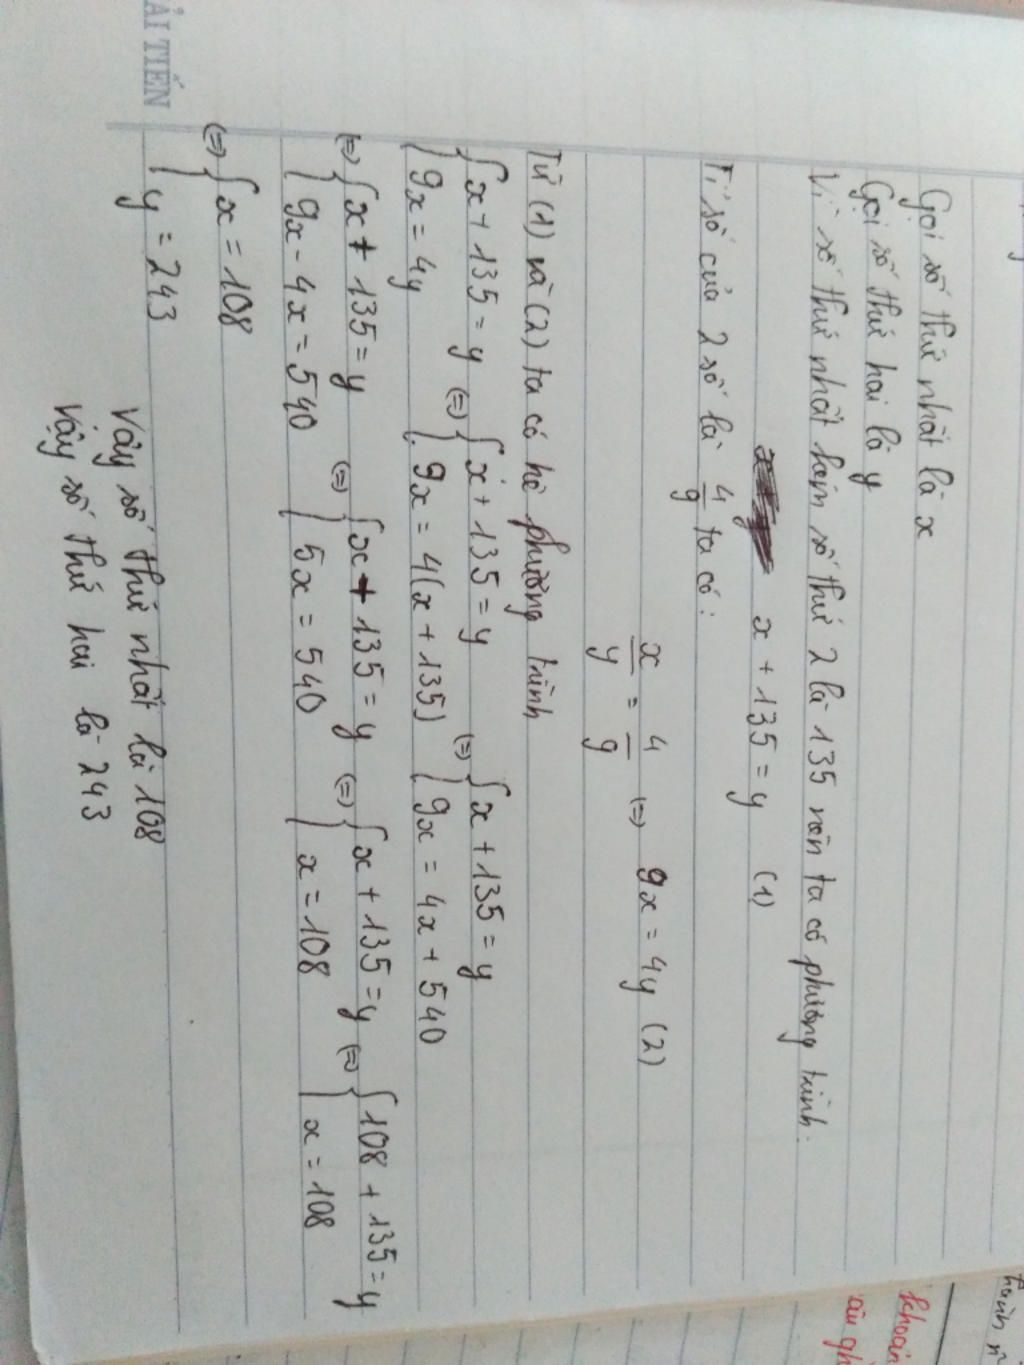 Gọi số thứ nhất là x
Gọi số thứ hai là y
Vì số thứ nhất kém số thứ 2 là 135 nên ta có phương trình.
x + 135 = y (1)
Tỉ số của 2 số là 4/9 ta có:
x/y = 4/9 (=) 9x = 4y (2)
Từ (1) và (2) ta có hệ phương trình
{ x + 135 = y (=) { x + 135 = y (=) { x + 135 = y
{ 9x = 4y { 9x = 4(x + 135) { 9x = 4x + 540
(=) { x + 135 = y (=) { x + 135 = y (=) { x + 135 = y (=) { 108 + 135 = y
{ 9x - 4x = 540 { 5x = 540 { x = 108 { x = 108
(=) { x = 108
{ y = 243
Vậy số thứ nhất là 108
Vậy số thứ hai là 243
ẢI TIẾN
khoản